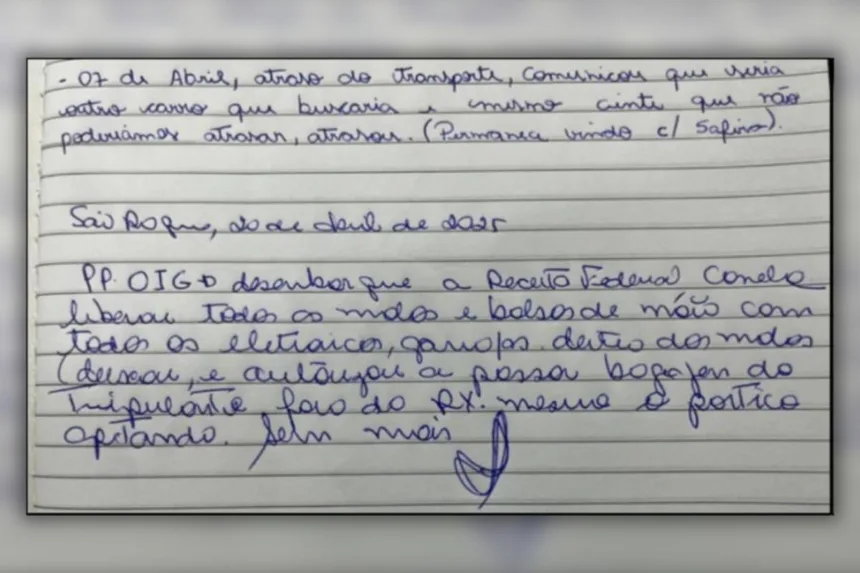 - 07 de Abril, atraso do transporte, comunicou que seria
outro carro que buscaria e mesmo ciente que não
poderiamos atrasar, atrasou. (Permanece vindo c/ Safira).
São Roque, 20 de abril de 2025
PP. OIG desembarque a Receita Federal
liberou todos as malas e bolsas de mão com
todos os eletronicos, garrafas dentro das malas
(deixou, e autorizou a passar bagagem do
tripulante fora do RX. mesmo o portico
apitando. Sem mais